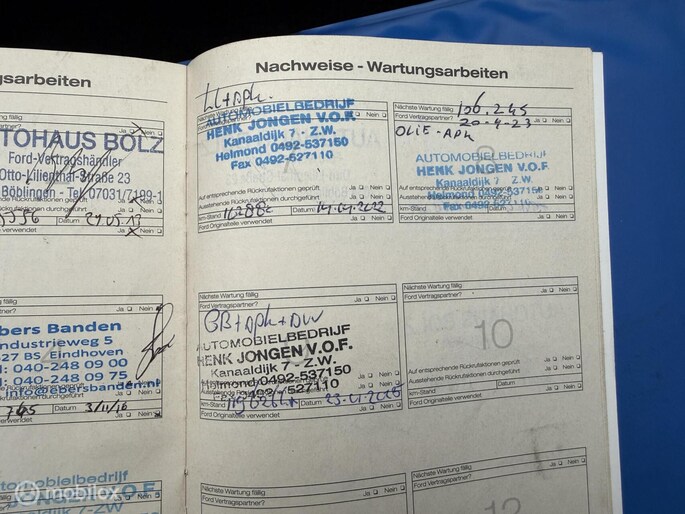 ngsarbeiten
fällig
Ja Nein
TOHAUS BÖLZ
Ford-Vertragshändler
Otto-Lilienthal-Straße 23
Böblingen - Tel. 07031/7199-1
Ja Nein
verwendet
Ja Nein
fällig
Ja Nein
bers Banden
ndustrieweg 5
27 BS Eindhoven
: 040-248 09 00
: 040-248 09 75
info@ebersbanden.nl
745 Datum 3/11/16
verwendet Ja Nein
utomobielbedrijf
JONGEN V.O.F.
7-ZW
Nachweise - Wartungsarbeiten
AUTOMOBIELBEDRIJF
HENK JONGEN V.O.F.
Kanaaldijk 7 - Z.W.
Helmond 0492-537150
Fax 0492-527110
Auf entsprechende Rückrufaktionen geprüft Ja Nein
Ausstehende Rückrufaktionen durchgeführt Ja Nein
km-Stand Datum 14-04-2022
Ford Originalteile verwendet Ja Nein
Nächste Wartung fällig 106.245
Ford Vertragspartner? 20-4-23
OLIE-APK
AUTOMOBIELBEDRIJF
HENK JONGEN V.O.F.
Kanaaldijk 7 - Z.W.
Helmond 0492-537150
Fax 0492-527110
Auf entsprechende Rückrufaktionen geprüft
km-Stand
Ford Originalteile verwendet Ja Nein
Nächste Wartung fällig Ja Nein
Ford Vertragspartner?
AUTOMOBIELBEDRIJF
HENK JONGEN V.O.F.
Kanaaldijk 7 - Z.W.
Helmond 0492-537150
0492/527110
km-Stand Datum
Ford Originalteile verwendet Ja Nein
Nächste Wartung fällig Ja Nein
Ford Vertragspartner?
10
Auf entsprechende Rückrufaktionen geprüft Ja Nein
Ausstehende Rückrufaktionen durchgeführt Ja Nein
km-Stand Datum
Ford Originalteile verwendet Ja Nein
Nächste Wartung fällig Ja Nein
Ford Vertragspartner?
Nächste Wartung fällig Ja Nein
Ford Vertragspartner?
12
mobilox